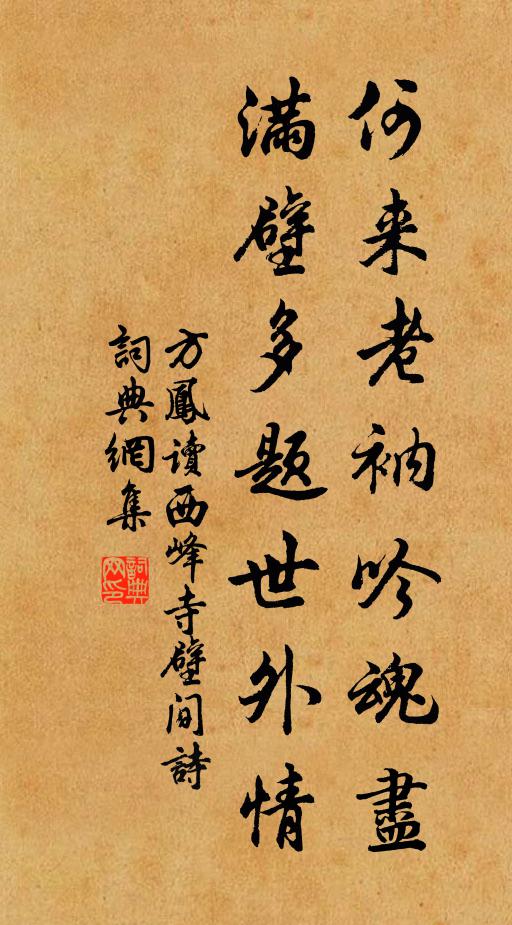 何来老衲吟魂盡
滿壁多题世外情
方鳳读西峰寺壁间詩
詞典網集
詞典
网印